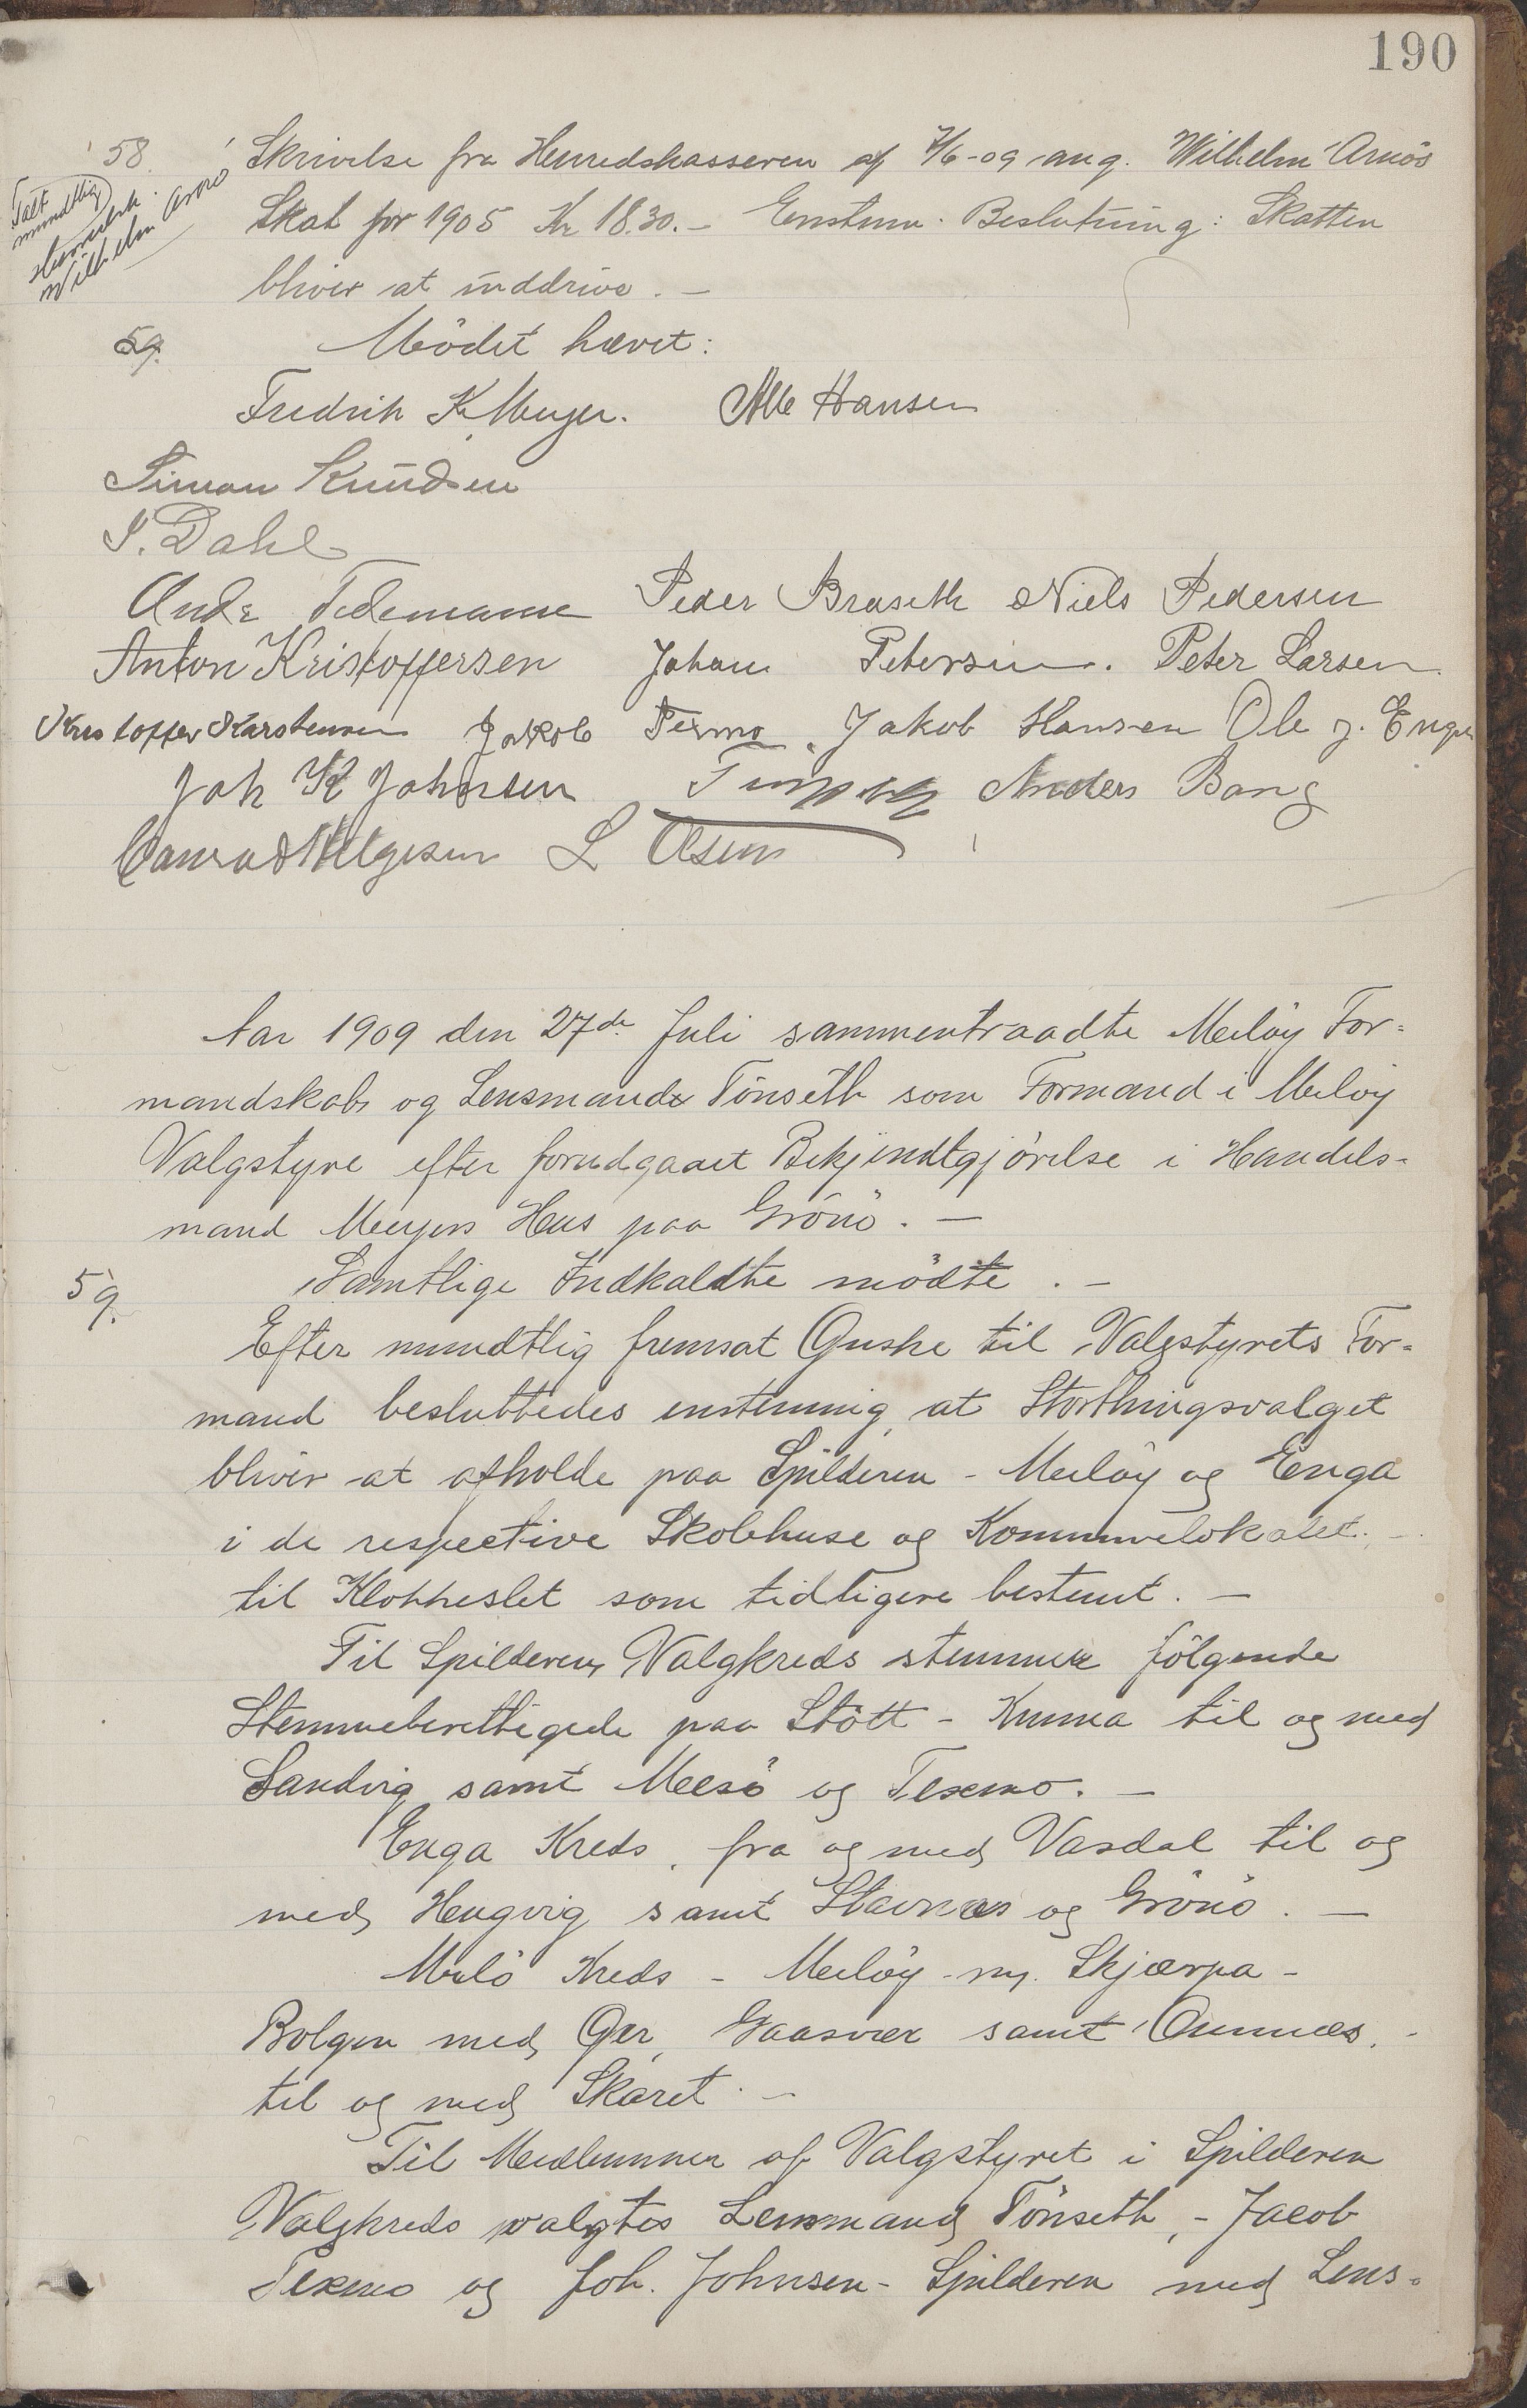 190
58. Skrivelse fra Herredskasseren af 4/6-09 ang. Wilhelm Arnös
Talt
mundtlig
Herredsk.
Wilhelm Arnö
Skat for 1905 Kr 18.30.- Enstem. Beslutning: Skatten
bliver at inddrive. -
59. Mödet hævet:
Fredrik K. Meyer. Alb Hansen
Simon Knudsen
P. Dahl
Andr Tidemann Peder Braseth Niels Pedersen
Anton Kristoffersen Johan Petersen. Peter Larsen
Kristoffer Karstensen Jakob Texmo. Jakob Hansen Ole J. Engen
Joh K Johnsen Anders Bang
Conrad Helgesen L Olsen
Aar 1909 den 27de Juli sammentraadte Melöy For-
mandskab og Lensmand Tönseth som Formand i Melöy
Valgstyre efter forudgaaet Bekjendtgjörelse i Handels-
mand Meyers Hus paa Grönö. -
Samtlige Indkaldte mödte. -
59.
Efter mundtlig fremsat Önske til Valgstyrets For-
mand besluttedes enstemmig, at Storthingsvalget
bliver at afholde paa Spilderen - Melöy og Enga
i de respective Skolehuse og Kommunelokalet. -
til Klokkeslet som tidligere bestemt. -
Til Spilderens Valgkreds stemmer fölgende
Stemmeberettigede paa Stött - Kunna til og med
Sandvig samt Mesö og Texmo. -
Enga Kreds, fra og med Vasdal til og
med Hengvig samt Stavnæs og Grönö. -
Melö Kreds - Melöy - m. Skjærpa -
Bolgen med Öer, Gaasvær samt Örnnæs. -
til og med Skaret. -
Til Medlemmer af Valgstyret i Spilderen
Valgkreds valgtes Lensmand Tönseth, - Jacob
Texmo og Joh. Johnsen - Spilderen med Lens-